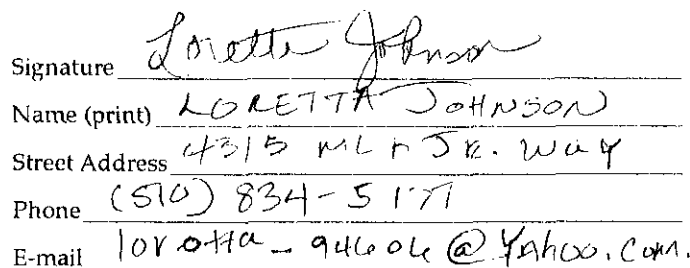 Signature Loretta Johnson
Name (print) LORETTA JOHNSON
Street Address 4315 MLK JR. WAY
Phone (510) 834-5177
E-mail loretta_94606@YAhoo.com.